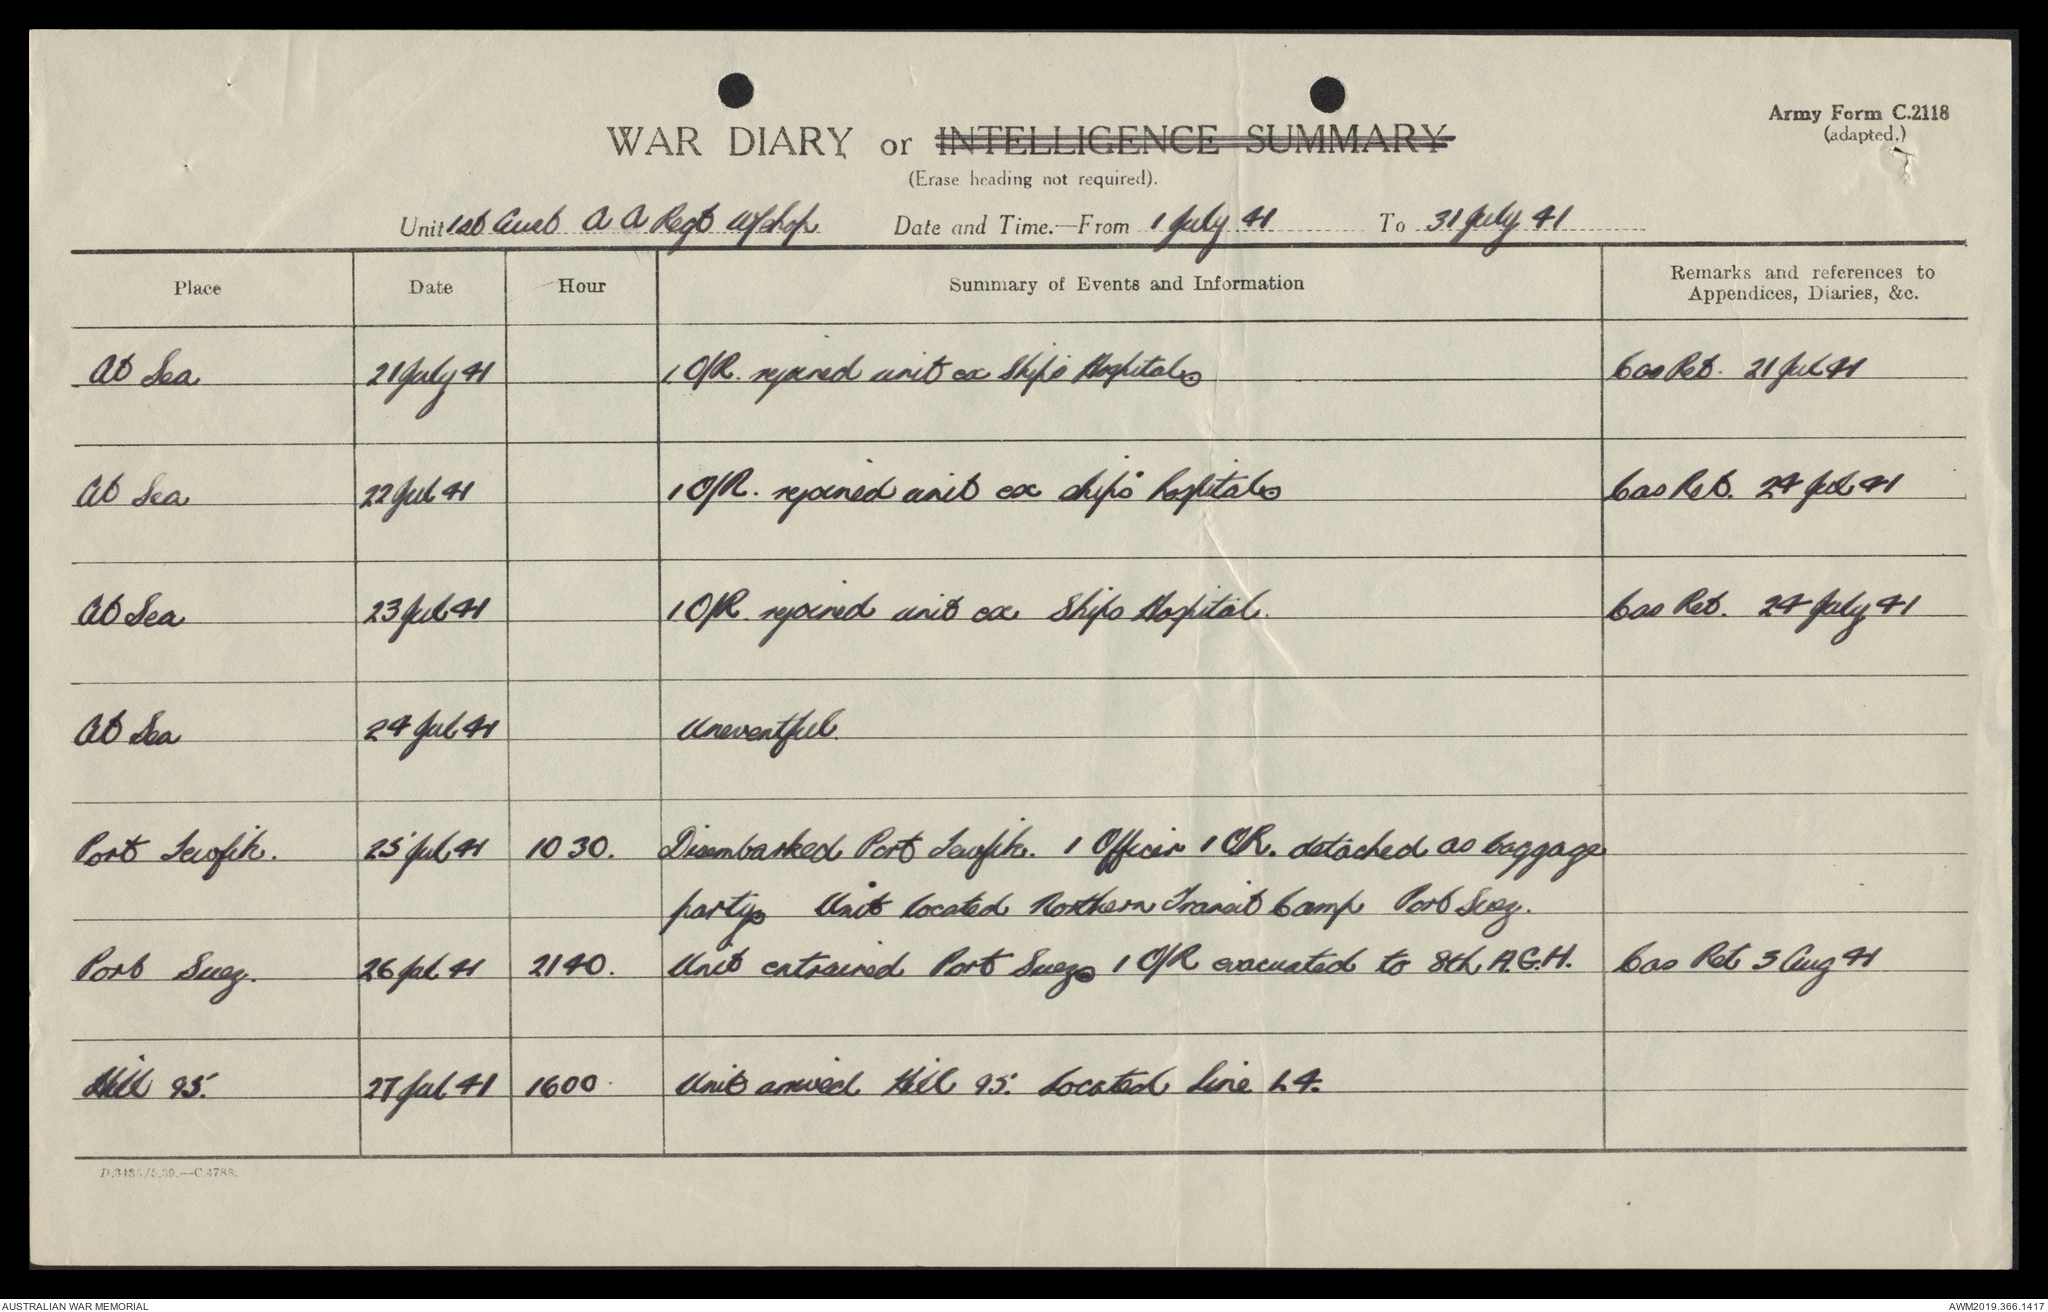 Army Form C.2118
(adapted.)
WAR DIARY or INTELLIGENCE SUMMARY
(Erase heading not required).
Unit 1st Aust A A Regt W/shop Date and Time.—From 1 July 41 To 31 July 41
Place Date Hour Summary of Events and Information Remarks and references to
Appendices, Diaries, &c.
At Sea 21 July 41 1 O/R. rejoined unit ex Ships Hospital. Cas Ret. 21 Jul 41
At Sea 22 Jul 41 1 O/R. rejoined unit ex ships hospital. Cas Ret. 24 Jul 41
At Sea 23 Jul 41 1 O/R. rejoined unit ex Ships Hospital. Cas Ret. 24 July 41
At Sea 24 Jul 41 Uneventful.
Port Tewfik. 25 Jul 41 1030. Disembarked Port Tewfik. 1 Officer 1 OR. detached as baggage
party. Unit located Northern Transit Camp Port Suez.
Port Suez. 26 Jul 41 2140. Unit entrained Port Suez. 1 O/R evacuated to 8th A.G.H. Cas Ret 3 Aug 41
Hill 95. 27 Jul 41 1600. Unit arrived Hill 95. Located Line L4.
D.3435/5.39.—C.4788.
AUSTRALIAN WAR MEMORIAL AWM2019.366.1417